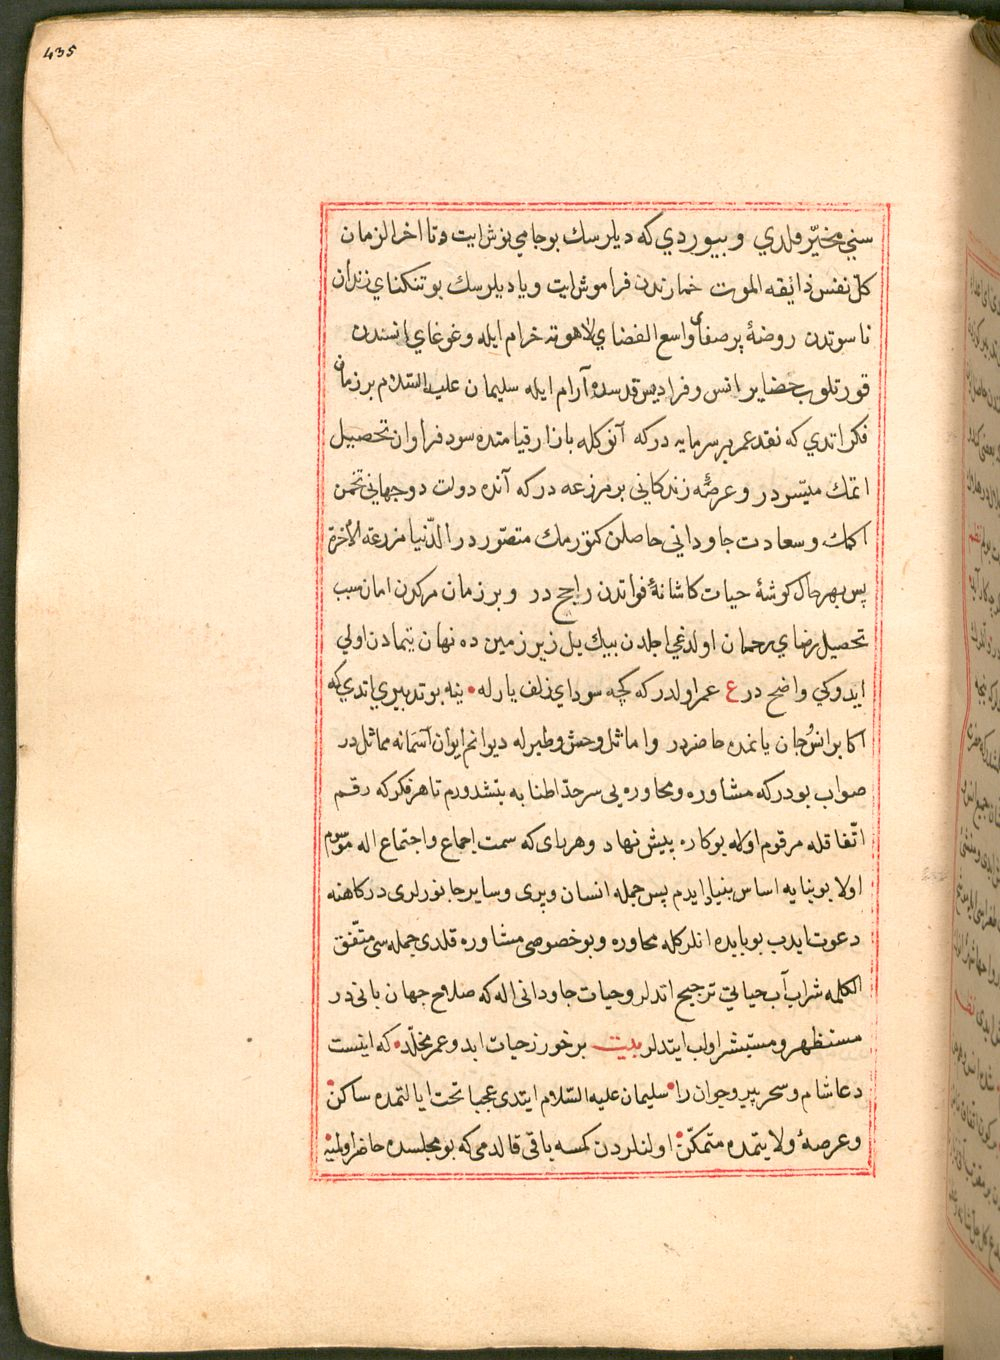 435
سني مخيّر قلدي و بيوردي كه ديلرسك بو جامي نوش ايت و تا اخر الزمان
كلّ نفس ذائقه الموت خمارندن فراموش ايت و يا ديلرسك بو تنكناي زندان
ناسوتدن روضۀ پرصفاي واسع الفضاي لاهوته خرام ايله و غوغاي انسندن
قورتلوب حضاير انس و فراديس قدسده آرام ايله سليمان عليه السّلام بر زمان
فكر اتدي كه نقد عمر بر سرمايه دركه آنوكله بازار قيامتده سود فراوان تحصيل
اتمك ميسّر در و عرصۀ زندكاني بر مزرعه دركه آنده دولت دو جهاني تخمن
اكمك و سعادت جاوداني حاصلن كتورمك متصوّر در الدّنيا مزرعة الاخرة
پس بهر حال كوشۀ حيات كاشانۀ فواتدن راجح در و بر زمان مركدن امان سبب
تحصيل رضاي رحمان اولدغي اجلدن بيك ييل زير زمين ده نهان يتمادن اولي
ايدوكي واضح در ع عمر اولدر كه كچه سوداي زلف يارله • ينه بو تدبيري اتدي كه
اكا بر انس و جان يانمده حاضر در و اماثل وحش و طير له ديوانم ايوان آسمانه مماثل در
صواب بودر كه مشاوره و محاوره يي سر حدّ اطنابه يتشدورم تا هر فكر كه رقم
اتّفاقله مرقوم اوله بو كاره پيش نهاد و هر راى كه سمت اجماع و اجتماع اله موسوم
اولا بو بنايه اساس بنياد ايدم پس جمله انسان و پرى و ساير جانورلرى دركاهنه
دعوت ايدب بو بابده انلركله محاوره و بو خصوصى مشاوره قلدى جمله سى متّفق
الكلمه شراب آب حياتي ترجيح اتدلر و حيات جاودانى اله كه صلاح جهان بانى در
مستظهر و مستبشر اولب ايتدلر بيت برخور ز حيات ابد و عمر مخلّد • كه اينست
دعا شام و سحر پير و جوان را • سليمان عليه السّلام ايتدى عجبا تحت ايالتمده ساكن •
و عرصۀ ولايتمده متمكّن • اولنلردن كمسه باقى قالدمى كه بو مجلسده حاضر اولميه •